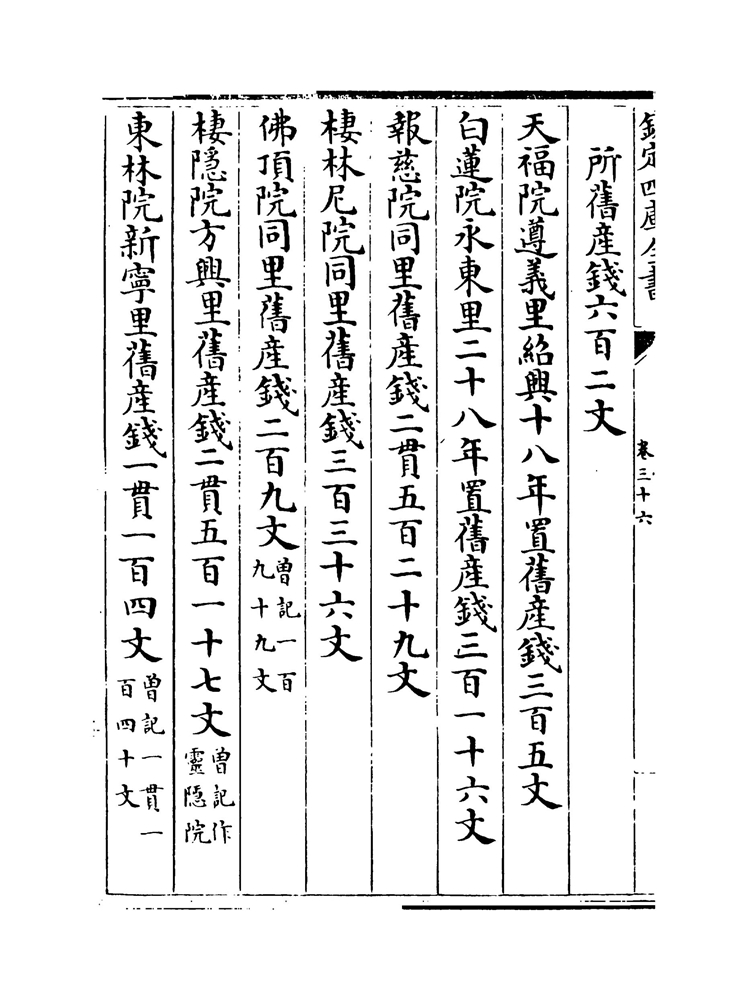 欽定四庫全書
卷三十六
所舊産錢六百二文
天福院遵義里紹興十八年置舊産錢三百五文
白蓮院永東里二十八年置舊産錢三百一十六文
報慈院同里舊産錢二貫五百二十九文
棲林尼院同里舊産錢三百三十六文
佛頂院同里舊産錢二百九文曽記一百九十九文
棲隱院方興里舊産錢二貫五百一十七文曽記作靈隱院
東林院新寧里舊産錢一貫一百四文曽記一貫一百四十文